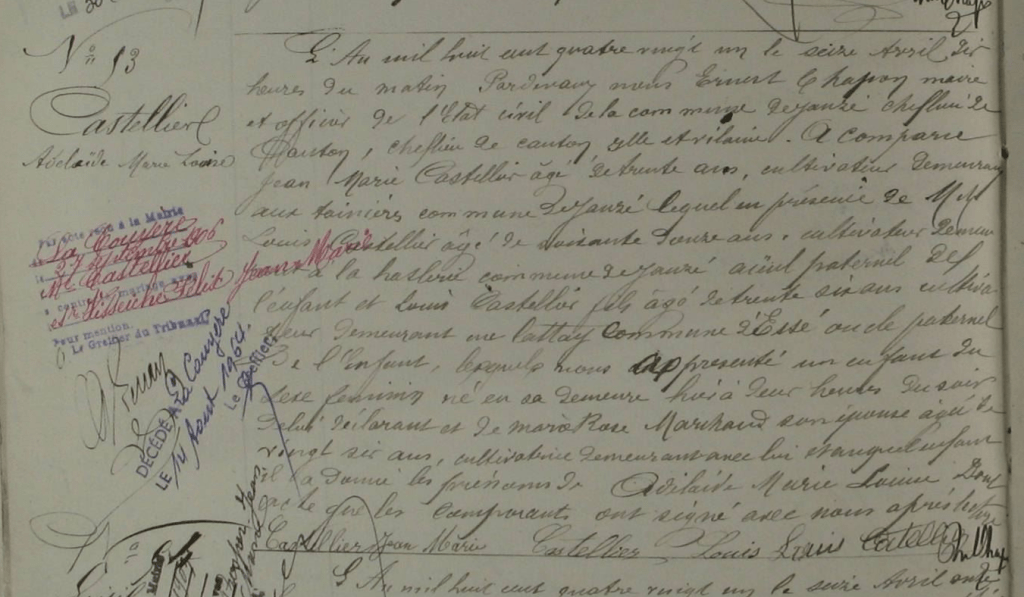 N° 13
Castellier
Adelaïde Marie Louise
L'An mil huit cent quatre vingt un le seize Avril dix
heures du matin Pardevant nous Ernest Chapon maire
et officier de l'Etat civil de la commune de Janzé cheflieu de
Canton, cheflieu de canton ille et vilaine. A comparu
Jean Marie Castellier âgé de trente ans, cultivateur demeurant
aux commune de Janzé lequel en présence de
Louis Castellier âgé de soixante douze ans, cultivateur demeu
à la commune de Janzé aïeul paternel de
l'enfant et Louis Castellier fils âgé de trente six ans cultiva
teur demeurant commune d'Essé oncle paternel
De l'Enfant, lesquels nous a présenté un enfant du
sexe féminin né en sa demeure hier à deux heures du soir
De lui déclarant et de Marie Rose Marchand son épouse âgée de
vingt six ans, cultivatrice demeurant avec lui et auquel enfant
il a donné les prénoms de Adélaïde Marie Louise Dont
acte que les comparants ont signé avec nous après lecture
Castellier Jean Marie Castellier Louis Louis Castellier
Par acte reçu à la Mairie
de La Couyère
le 27 1906
Mle Castellier
a contracté mariage avec
Jean Marie
Pour mention.
Le Greffier du Tribunal
DÉCÉDÉ A La Couyère
LE 14 Août 1964.
Le Greffier
L'An mil huit cent quatre vingt un le seize Avril onze